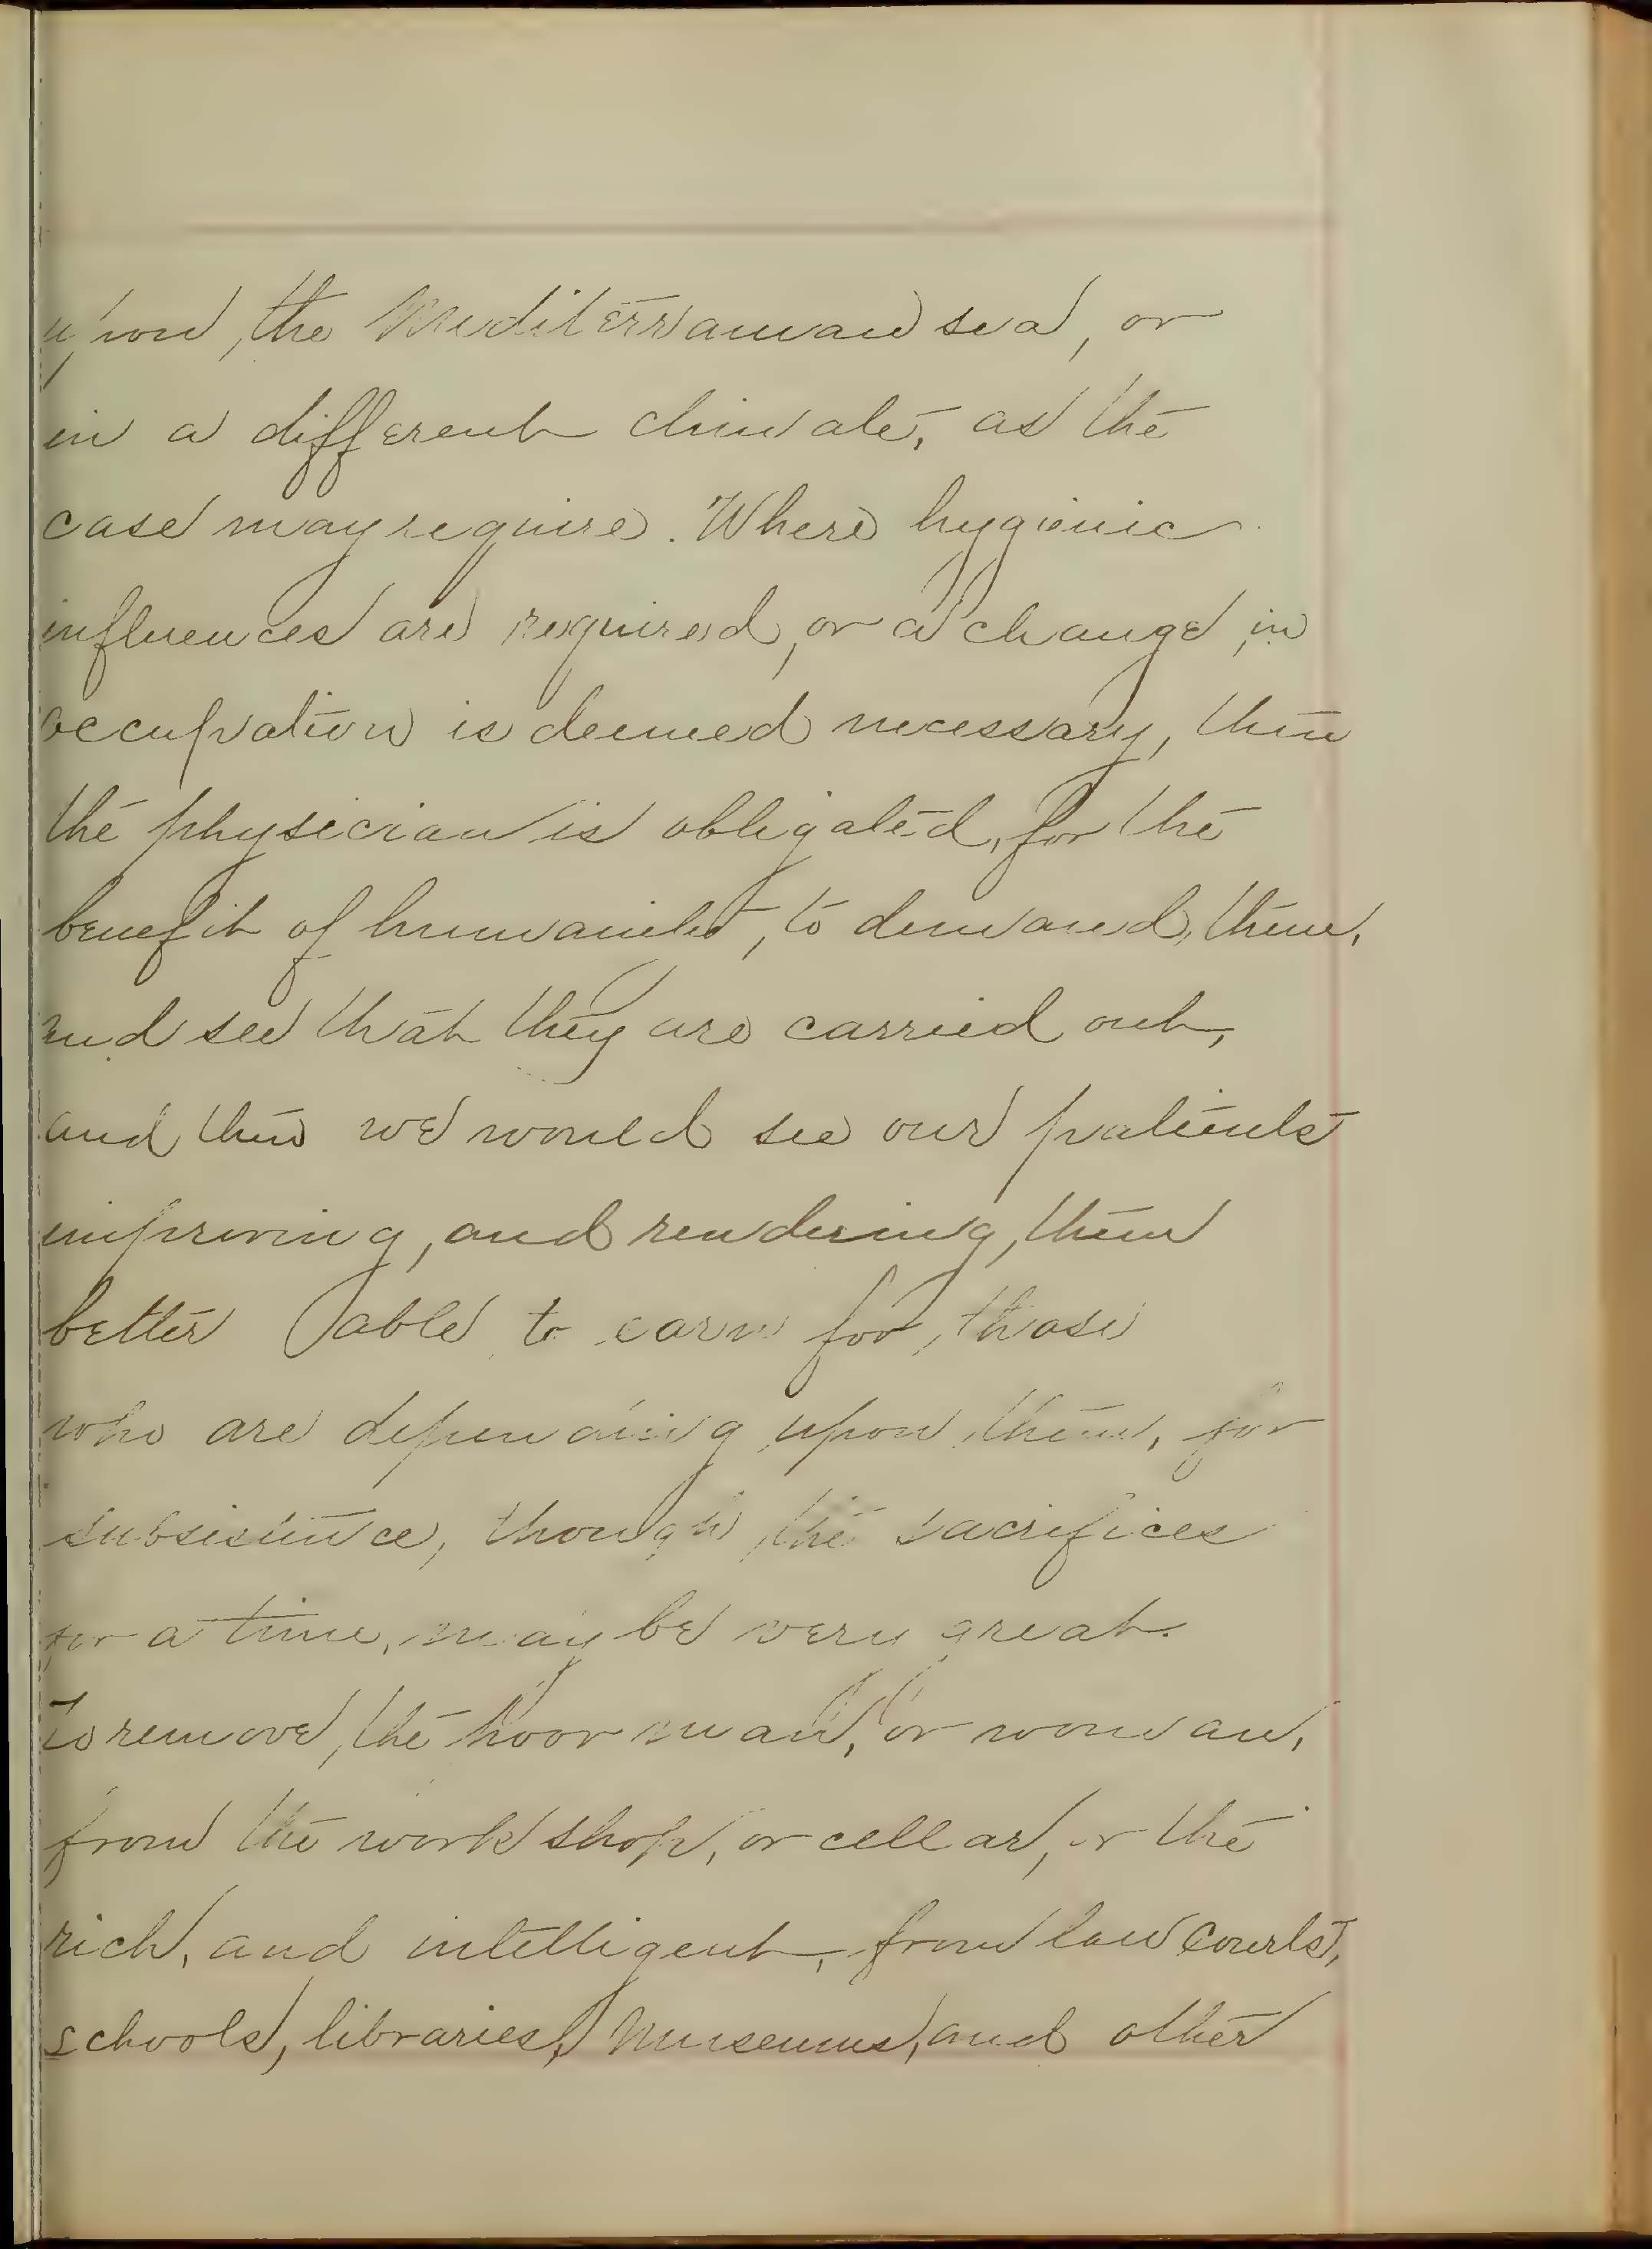 upon, the Mediterranean sea, or
in a different climate, as the
case may require. Where hygienic
influences are required, or a change in
occupation is deemed necessary, then
the physician is obligated, for the
benefit of humanity, to demand, them,
and see that they are carried out,
and then we would see our patients
improving, and rendering, them
better able to earn for, those
who are depending upon them, for
subsistence, though the sacrifices
for a time, may be very great.
To remove, the poor man, or woman,
from the work shop, or cellar, or the
rich, and intelligent, from law courts,
schools, libraries, Museums, and other